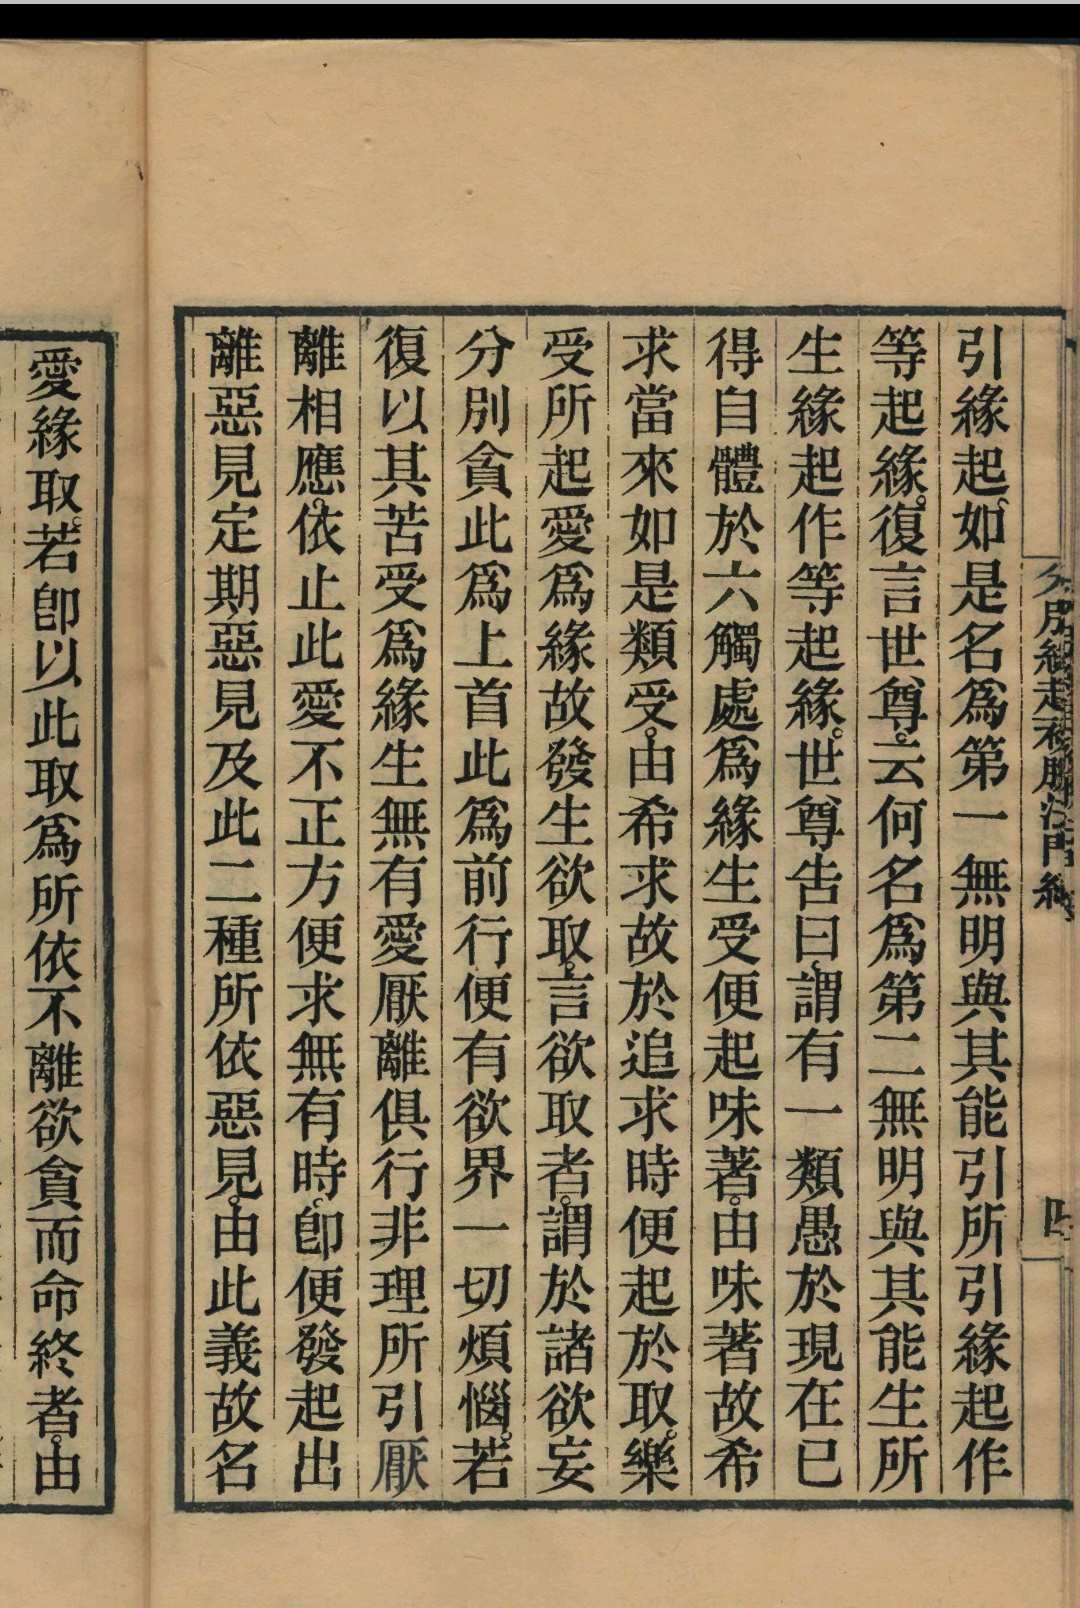 引緣起如是名爲第一無明與其能引所引緣起作
等起緣復言世尊云何名爲第二無明與其能生所
生緣起作等起緣世尊告曰謂有一類愚於現在已
得自體於六觸處爲緣生受便起味著由味著故希
求當來如是類受由希求故於追求時便起於取樂
受所起愛爲緣故發生欲取言欲取者謂於諸欲妄
分別貪此爲上首此爲前行便有欲界一切煩惱若
復以其苦受爲緣生無有愛厭離俱行非理所引厭
離相應依止此愛不正方便求無有時卽便發起出
離惡見定期惡見及此二種所依惡見由此義故名
愛緣取若卽以此取爲所依不離欲貪而命終者由